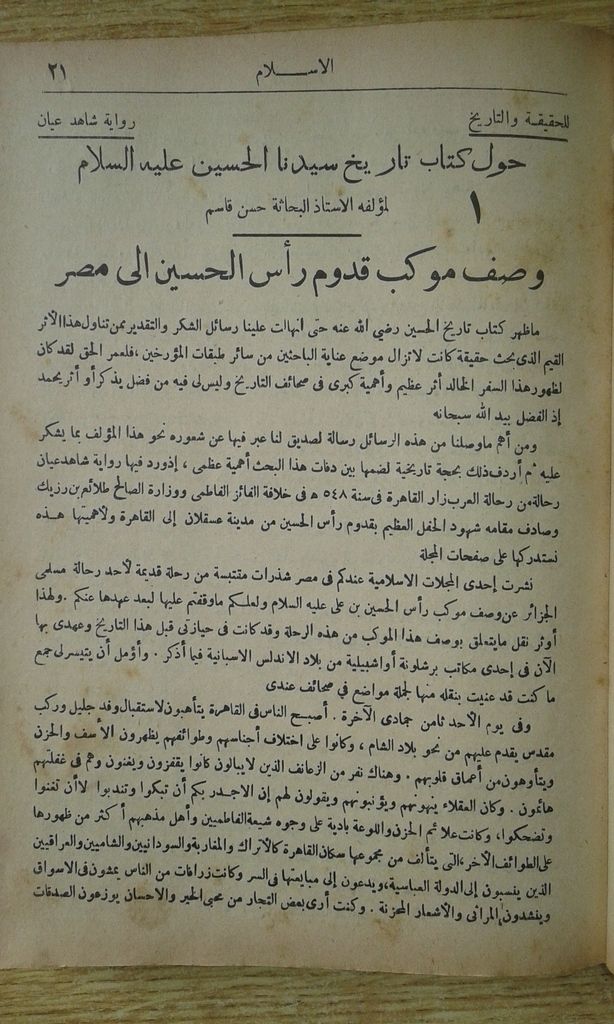 ٢١
الاســلام
للحقيقة والتاريخ
رواية شاهد عيان
حول كتاب تاريخ سيدنا الحسين عليه السلام
١
لمؤلفه الاستاذ البحاثة حسن قاسم
وصف موكب قدوم رأس الحسين الى مصر
ماظهر كتاب تاريخ الحسين رضي الله عنه حتى انهالت علينا رسائل الشكر والتقدير ممن تناول هذا الأثر
القيم الذى بحث حقيقة كانت لاتزال موضع عناية الباحثين من سائر طبقات المؤرخين ، فلعمر الحق لقد كان
لظهور هذا السفر الخالد أثر عظيم وأهمية كبرى فى صحائف التاريخ وليس لى فيه من فضل يذكر أو أثر يحمد
إذ الفضل بيد الله سبحانه
ومن أهم ماوصلنا من هذه الرسائل رسالة لصديق لنا عبر فيها عن شعوره نحو هذا المؤلف بما يشكر
عليه ثم أردف ذلك بحجة تاريخية لضمها بين دفات هذا البحث أهمية عظمى ، إذ ورد فيها رواية شاهد عيان
رحالة من رحالة العرب زار القاهرة فى سنة ٥٤٨ ه فى خلافة الفائز الفاطمى ووزارة الصالح طلائع بن رزيك
وصادف مقامه شهود الحفل العظيم بقدوم رأس الحسين من مدينة عسقلان إلى القاهرة ولأهميتها هــذه
نستدركها على صفحات المجلة
نشرت إحدى المجلات الاسلامية عندكم فى مصر شذرات مقتبسة من رحلة قديمة لأحد رحالة مسلمى
الجزائر عن وصف موكب رأس الحسين بن على عليه السلام ولعلكم ماوقفتم عليها لبعد عهدها عنكم . ولهذا
أوثر نقل مايتعلق بوصف هذا الموكب من هذه الرحلة وقد كانت فى حيازتى قبل هذا التاريخ وعهدى بها
الآن فى إحدى مكاتب برشلونة أو اشبيلية من بلاد الاندلس الاسبانية فيما أذكر . وأؤمل أن يتيسر لى جمع
ما كنت قد عنيت بنقله منها لجملة مواضع فى صحائف عندى
وفى يوم الأحد ثامن جمادى الآخرة . أصبح الناس فى القاهرة يتأهبون لاستقبال وفد جليل وركب
مقدس يقدم عليهم من نحو بلاد الشام ، وكانوا على اختلاف أجناسهم وطوائفهم يظهرون الأسف والحزن
ويتأوهون من أعماق قلوبهم . وهناك نفر من الزعانف الذين لايبالون كانوا يقفزون ويغنون وهم فى غفلتهم
هائمون . وكان العقلاء ينهونهم ويؤنبونهم ويقولون لهم إن الاجدر بكم أن تبكوا وتندبوا لا أن تغنوا
وتضحكوا، وكانت علائم الحزن واللوعة بادية على وجوه شيعة الفاطميين وأهل مذهبهم أكثر من ظهورها
على الطوائف الآخر ، التى يتألف من مجموعها سكان القاهرة كالاتراك والمغاربة والسودانيين والشاميين والعراقيين
الذين ينسبون إلى الدولة العباسية، ويدعون إلى مبايعتها فى السر وكانت زرافات من الناس يمشون فى الاسواق
وينشدون المراثى والأشعار المحزنة . وكنت أرى بعض التجار من محبى الخير والاحسان يوزعون الصدقات